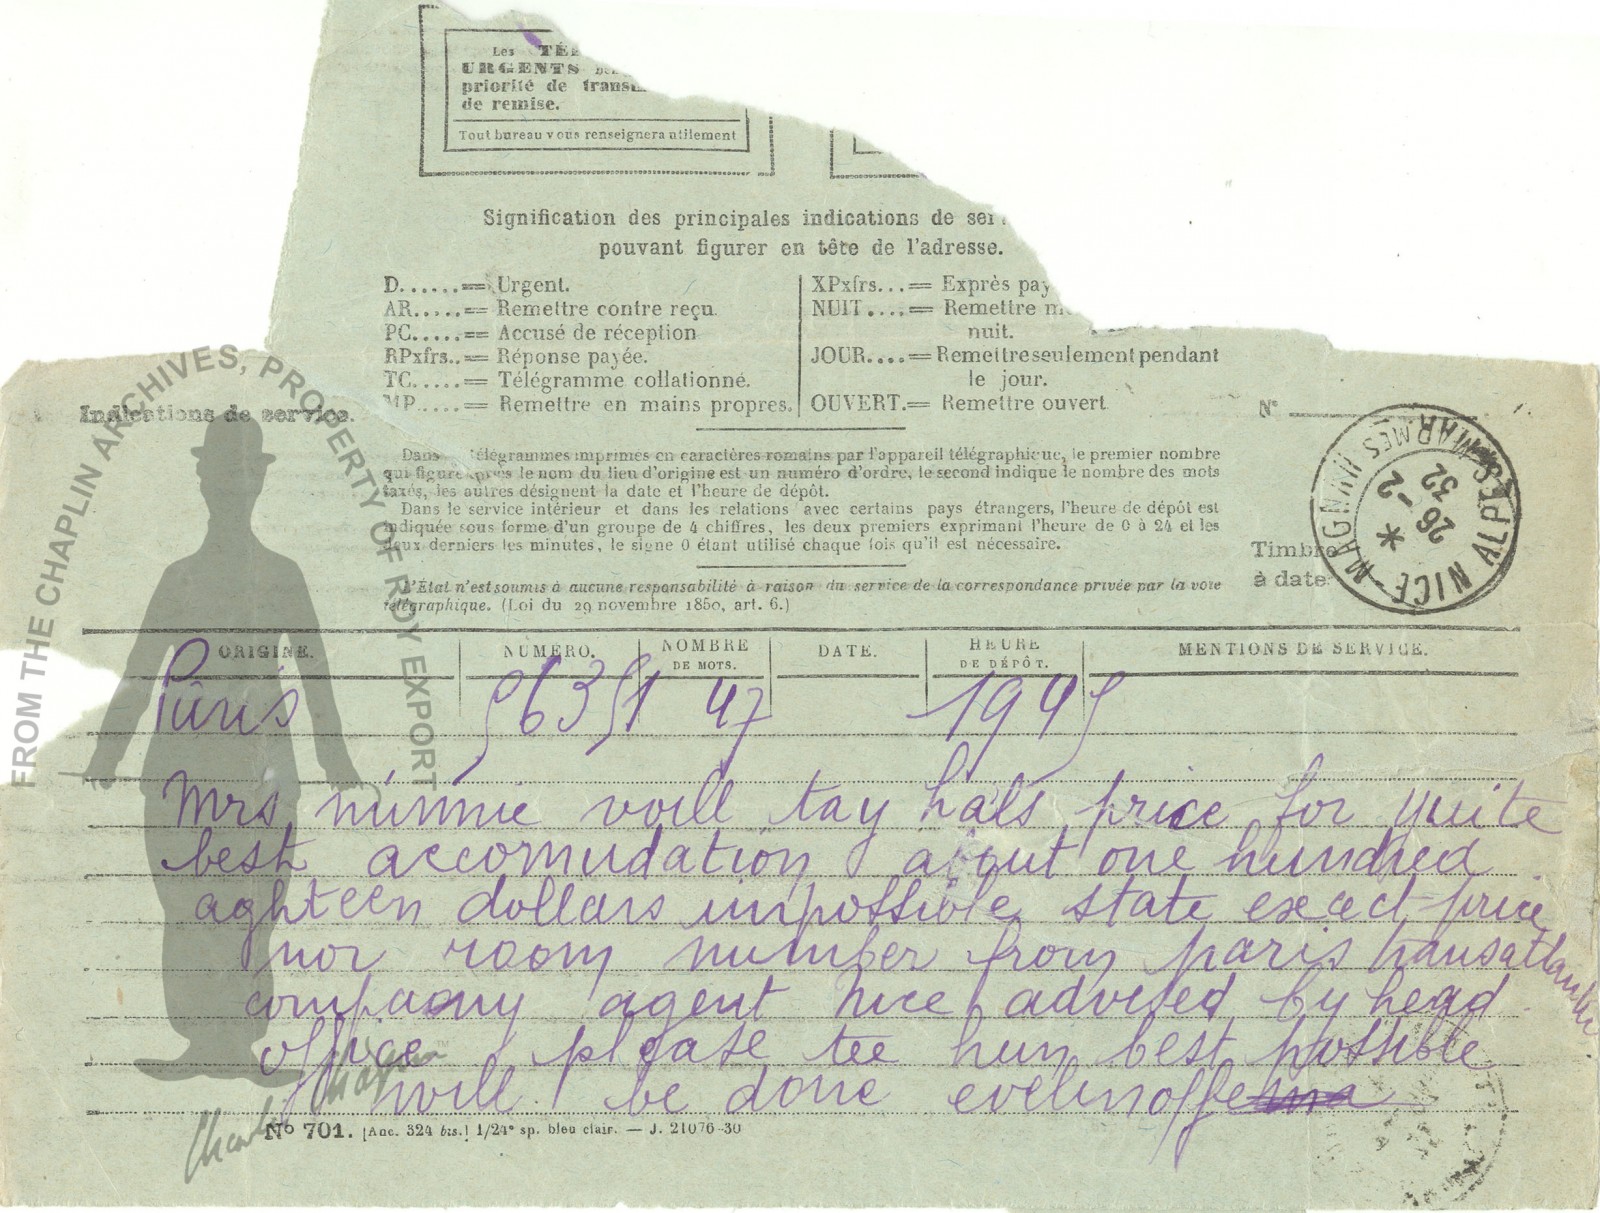 Les TÉ
URGENTS
priorité de trans
de remise.
Tout bureau vous renseignera utilement
Signification des principales indications de ser
pouvant figurer en tête de l'adresse.
D......== Urgent.
AR.....== Remettre contre reçu.
PC.....== Accusé de réception
RPxfrs..= Réponse payée.
TC.....= Télégramme collationné.
MP.....= Remettre en mains propres.
XPxfrs...= Exprès pay
NUIT....= Remettre
nuit.
JOUR....= Remettre seulement pendant
le jour.
OUVERT.= Remettre ouvert
Indications de service.
N°
Dans télégrammes imprimés en caractères romains par l'appareil télégraphique, le premier nombre
qui figure après le nom du lieu d'origine est un numéro d'ordre, le second indique le nombre des mots
taxés, les autres désignent la date et l'heure de dépôt.
Dans le service intérieur et dans les relations avec certains pays étrangers, l'heure de dépôt est
indiquée sous forme d'un groupe de 4 chiffres, les deux premiers exprimant l'heure de 0 à 24 et les
deux derniers les minutes, le signe 0 étant utilisé chaque fois qu'il est nécessaire.
L'État n'est soumis à aucune responsabilité à raison du service de la correspondance privée par la voie
télégraphique. (Loi du 29 novembre 1850, art. 6.)
Timbre
à date
NICE-MAGNAN ALPES MARMES
26-2
32
ORIGINE. NUMÉRO. NOMBRE DE MOTS. DATE. HEURE DE DÉPÔT. MENTIONS DE SERVICE.
Paris 56351 47 1945
Mrs minnie will tay hals price for quite
best accomudation about one hundred
aghteen dollars impossible state exect price
nor room number from paris transatlantic
compagny agent nice advised by head
office please tee him best possible
will be done evelinoffe
N° 701. [Anc. 324 bis.] 1/24e sp. bleu clair. — J. 21076-30
FROM THE CHAPLIN ARCHIVES, PROPERTY OF ROY EXPORT
Charlie Chaplin